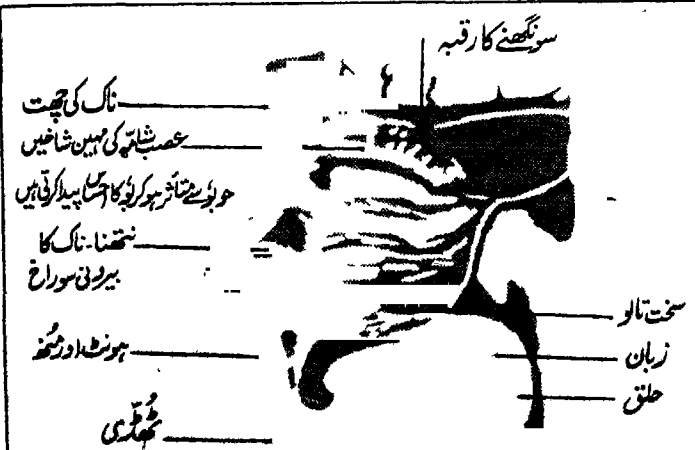 سونگھنے کا رقبہ
ناک کی چھت
عصب شامہ کی مہین شاخیں
جو بُو سے متاثر ہو کر بُو کا احساس پیدا کرتی ہیں
نتھنا۔ ناک کا
بیرونی سوراخ
ہونٹ اور مُنھ
ٹھُڈّی
سخت تالو
زبان
حلق